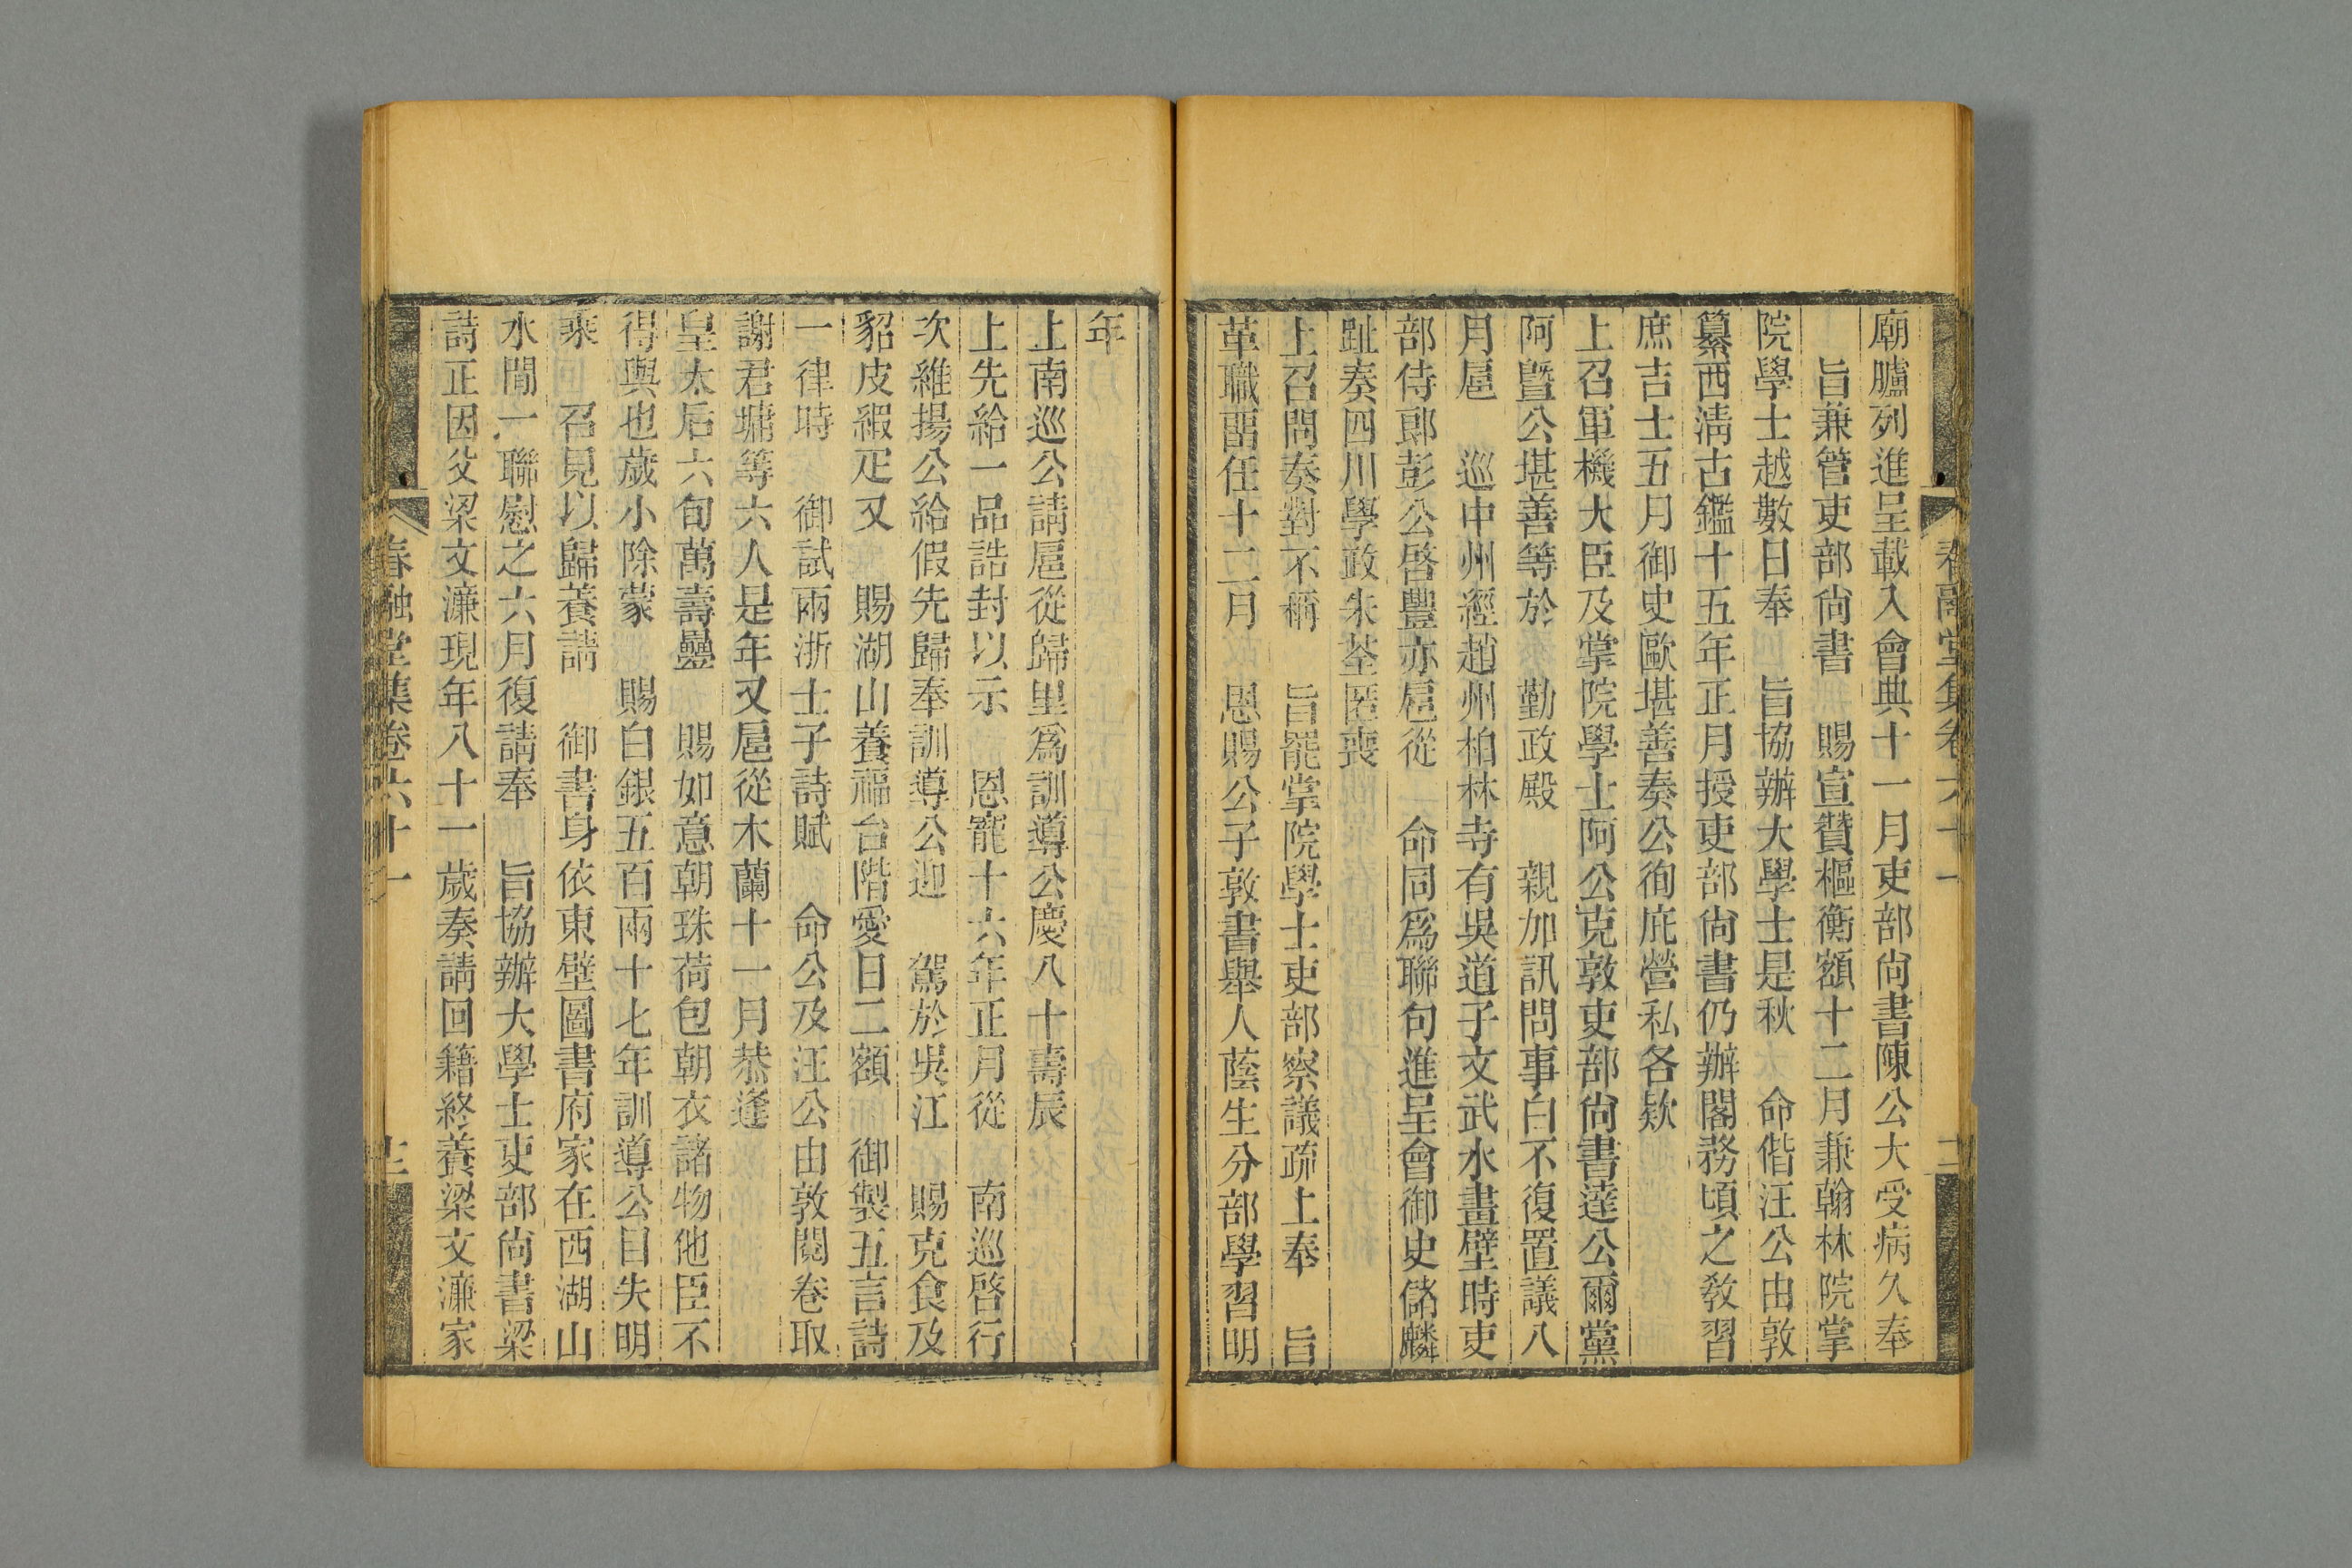 廟臚列進呈載入會典十一月吏部尚書陳公大受病久奉
旨兼管吏部尚書　賜宣贊樞衡額十二月兼翰林院掌
院學士越數日奉　旨協辦大學士是秋　命偕汪公由敦
纂西淸古鑑十五年正月授吏部尚書仍辦閣務頃之敎習
庶吉士五月御史歐堪善奏公徇庇營私各欵
上召軍機大臣及掌院學士阿公克敦吏部尚書達公爾黨
阿曁公堪善等於　勤政殿　親加訊問事白不復置議八
月扈　巡中州經趙州柏林寺有吳道子文武水畫壁時吏
部侍郞彭公啓豐亦扈從　命同爲聯句進呈會御史儲麟
趾奏四川學政朱荃匿喪
上召問奏對不稱　旨罷掌院學士吏部察議疏上奉　旨
革職畱任十二月　恩賜公子敦書舉人蔭生分部學習明
春融堂集卷六十一
年
上南巡公請扈從歸里爲訓導公慶八十壽辰
上先給一品誥封以示　恩寵十六年正月從　南巡啓行
次維揚公給假先歸奉訓導公迎　駕於吳江　賜克食及
貂皮緞疋又　賜湖山養福台階愛日二額　御製五言詩
一律時　御試兩浙士子詩賦　命公及汪公由敦閱卷取
謝君墉等六人是年又扈從木蘭十一月恭逢
皇太后六旬萬壽疊　賜如意朝珠荷包朝衣諸物他臣不
得與也歲小除蒙　賜白銀五百兩十七年訓導公目失明
乘　召見以歸養請　御書身依東壁圖書府家在西湖山
水間一聯慰之六月復請奉　旨協辦大學士吏部尚書梁
詩正因父梁文濂現年八十一歲奏請回籍終養梁文濂家
春融堂集卷六十一